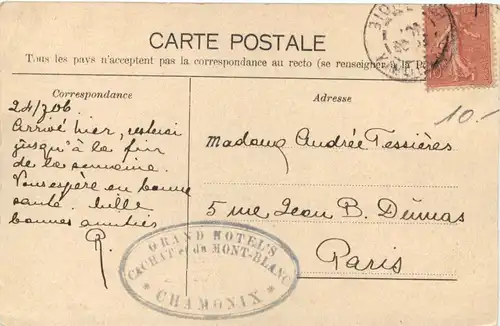 CARTE POSTALE
Tous les pays n'acceptent pas la correspondance au recto (se renseigner à la Po
Correspondance
Adresse
10.-
24/7 06
Arrivé hier, resterai
jusqu'à la fin
de la semaine.
Vous espère en bonne
santé. Mille
bonnes amitiés
R.
Madame Andrée Tessières
5 rue Jean B. Dumas
Paris
GRAND HOTEL'S
CACHAT et du MONT-BLANC
* CHAMONIX *